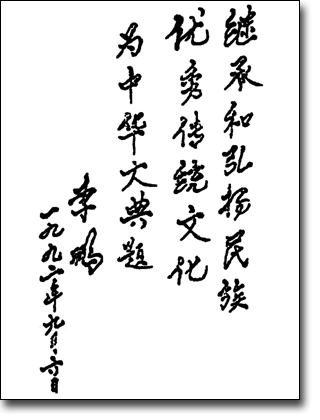 继承和弘扬民族
优秀传统文化
为中华大典题
李鹏
一九九六年九月六日